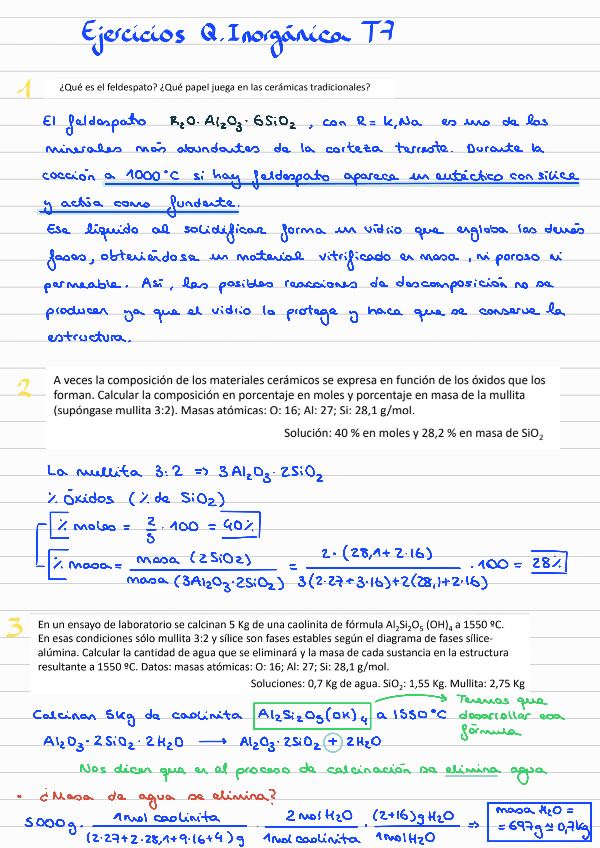 Ejercicios Q.Inorgánica T7
1 ¿Qué es el feldespato? ¿Qué papel juega en las cerámicas tradicionales?
El feldespato R₂O·Al₂O₃·6SiO₂, con R = K,Na es uno de los
minerales más abundantes de la corteza terreste. Durante la
cocción a 1000°C si hay feldespato aparece un eutéctico con sílice
y actúa como fundente.
Ese líquido al solidificar forma un vidrio que engloba las demás
fases, obteniéndose un material vitrificado en masa, ni poroso ni
permeable. Así, las posibles reacciones de descomposición no se
producen ya que el vidrio la protege y hace que se conserve la
estructura.
2 A veces la composición de los materiales cerámicos se expresa en función de los óxidos que los
forman. Calcular la composición en porcentaje en moles y porcentaje en masa de la mullita
(supóngase mullita 3:2). Masas atómicas: O: 16; Al: 27; Si: 28,1 g/mol.
Solución: 40 % en moles y 28,2 % en masa de SiO₂
La mullita 3:2 => 3Al₂O₃·2SiO₂
% óxidos (% de SiO₂)
% moles = 2/5 · 100 = 40%
% masa = masa (2SiO2) / masa (3Al₂O₃·2SiO₂) = 2·(28,1+2·16) / 3(2·27+3·16)+2(28,1+2·16) · 100 = 28%
3 En un ensayo de laboratorio se calcinan 5 Kg de una caolinita de fórmula Al₂Si₂O₅ (OH)₄ a 1550 ºC.
En esas condiciones sólo mullita 3:2 y sílice son fases estables según el diagrama de fases sílice-
alúmina. Calcular la cantidad de agua que se eliminará y la masa de cada sustancia en la estructura
resultante a 1550 ºC. Datos: masas atómicas: O: 16; Al: 27; Si: 28,1 g/mol.
Soluciones: 0,7 Kg de agua. SiO₂: 1,55 Kg. Mullita: 2,75 Kg
Calcinan 5Kg de caolinita Al₂Si₂O₅(OH)₄ a 1550°C
Tenemos que
desarrollar esa
fórmula
Al₂O₃·2SiO₂·2H₂O ⟶ Al₂O₃·2SiO₂ + 2H₂O
Nos dicen que en el proceso de calcinación se elimina agua
• ¿Masa de agua se elimina?
5000g · 1mol caolinita / (2·27+2·28,1+9·16+4) g · 2mol H₂O / 1mol caolinita · (2+16)g H₂O / 1mol H₂O => masa H₂O =
= 697g ≃ 0,7kg